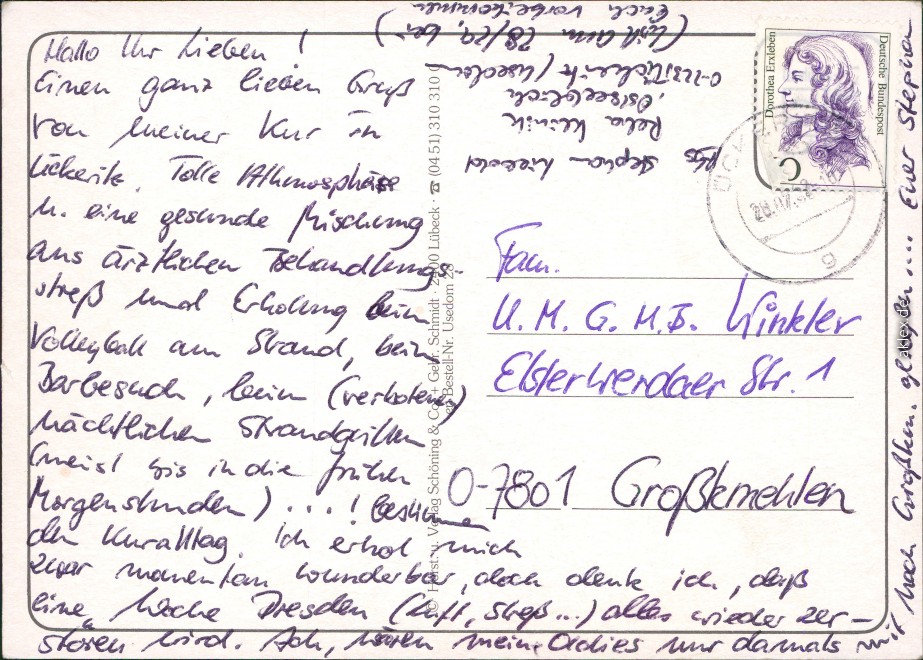 Hallo Ihr Lieben!
Einen ganz lieben Gruß
von meiner Kur in
Ückeritz. Tolle Athmosphäre
u. eine gesunde Mischung
aus ärztlichen Behandlungs-
streß und Erholung beim
Volleyball am Strand, beim
Barbesuch, beim (verbotenen)
nächtlichen Strandgrillen
(meist bis in die frühen
Morgenstunden) ...! bestimmen
den Kuralltag. Ich erhol mich
zwar momentan wunderbar, doch denk ich, daß
eine Woche Dresden (Luft, Streß...) alles wieder zer-
stören wird. Ach, wären meine Ordies nur damals
mit nach Großkm. gefahren.... Euer Stephan
(Will am 28/29. bei
Euch vorbeikommen)
Abs. Stephan
Reha Klinik
"Ostseeblick"
Ückeritz/Usedom
Fam.
U. M. G. M. B. Winkler
Elsterwerdaer Str. 1
O-7801 Großkmehlen
Deutsche Bundespost
Dorothea Erxleben
60
g
© Horst. u. Verlag Schöning & Co + Gebr. Schmidt · 2400 Lübeck · ☎ (04 51) 310 310
Bestell-Nr. Usedom 28